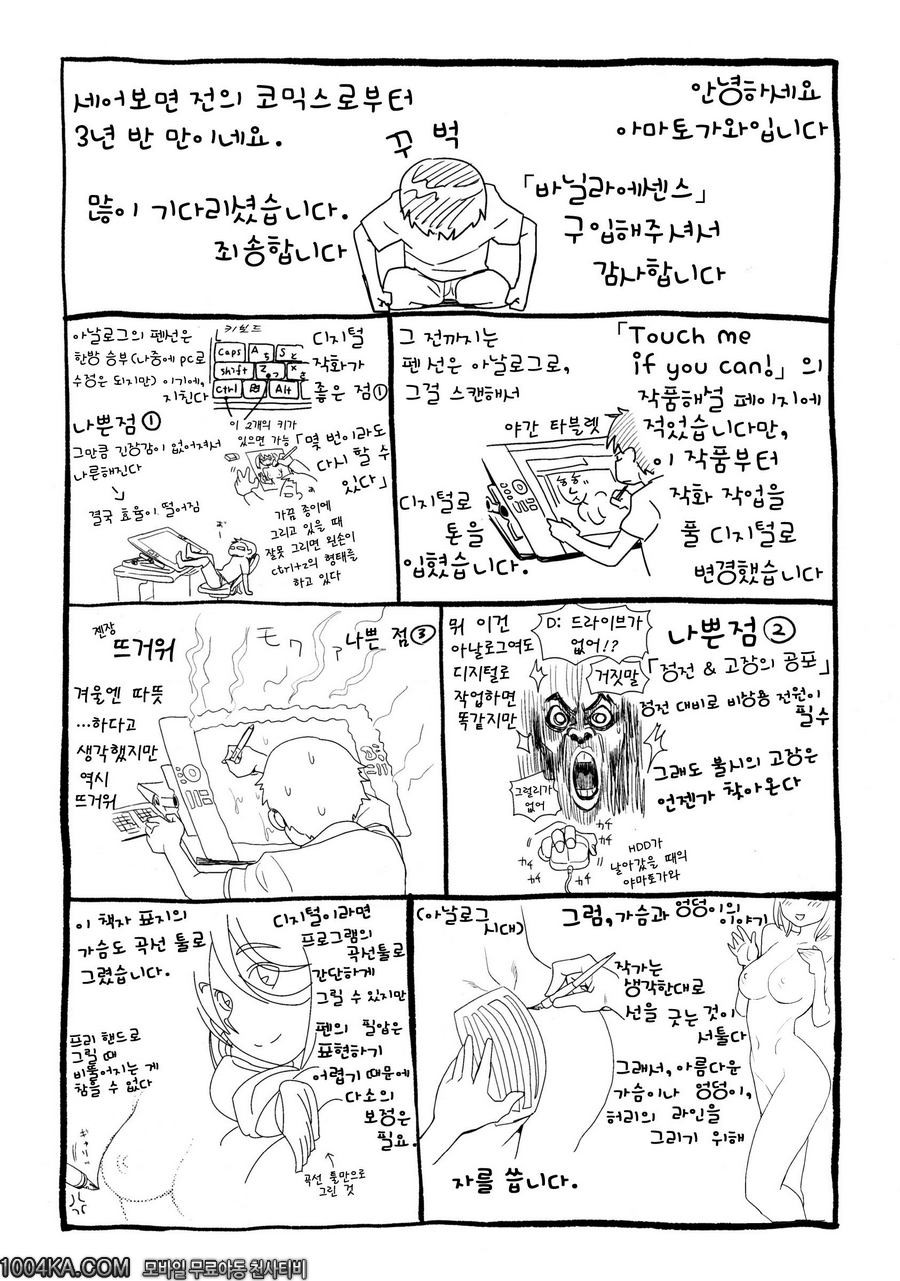 안녕하세요
아마토가와입니다
「바닐라에센스」
구입해주셔서
감사합니다
꾸벅
세어보면 전의 코믹스로부터
3년 반 만이네요.
많이 기다리셨습니다.
죄송합니다
「Touch me
if you can!」의
작품해설 페이지에
적었습니다만,
이 작품부터
작화 작업을
풀 디지털로
변경했습니다
그 전까지는
펜선은 아날로그로,
그걸 스캔해서
야간 타블렛
디지털로
톤을
입혔습니다.
디지털
작화가
좋은 점①
키보드
Caps A S
shift Z X
ctrl Alt
이 2개의 키가
있으면 가능
「몇 번이라도
다시 할 수
있다」
가끔 종이에
그리고 있을 때
잘못 그리면 왼손이
ctrl+z의 형태를
하고 있다
아날로그의 펜선은
한방 승부(나중에 PC로
수정은 되지만) 이기에,
지친다
나쁜점①
그만큼 긴장감이 없어져서
나른해진다
결국 효율이 떨어짐
나쁜점②
「정전 & 고장의 공포」
정전 대비로 비상용 전원이
필수
그래도 불시의 고장은
언젠가 찾아온다
D: 드라이브가
없어!?
거짓말
그럴리가
없어
뭐 이건
아날로그여도
디지털로
작업하면
똑같지만
カチ
カチ
カチ
カチ
HDD가
날아갔을 때의
야마토가와
나쁜 점③
モワ
젠장
뜨거워
겨울엔 따뜻
...하다고
생각했지만
역시
뜨거워
그럼, 가슴과 엉덩이의
이야기
(아날로그
시대)
작가는
생각한대로
선을 긋는 것이
서툴다
그래서, 아름다운
가슴이나 엉덩이,
허리의 라인을
그리기 위해
자를 씁니다.
디지털이라면
프로그램의
곡선툴로
간단하게
그릴 수 있지만
펜의 필압은
표현하기
어렵기 때문에
다소의
보정은
필요.
곡선 툴만으로
그린 것
이 책자 표지의
가슴도 곡선 툴로
그렸습니다.
프리 핸드로
그릴 때
비뚤어지는 게
참을 수 없다
1004KA.COM 모바일 무료야동 천사티비